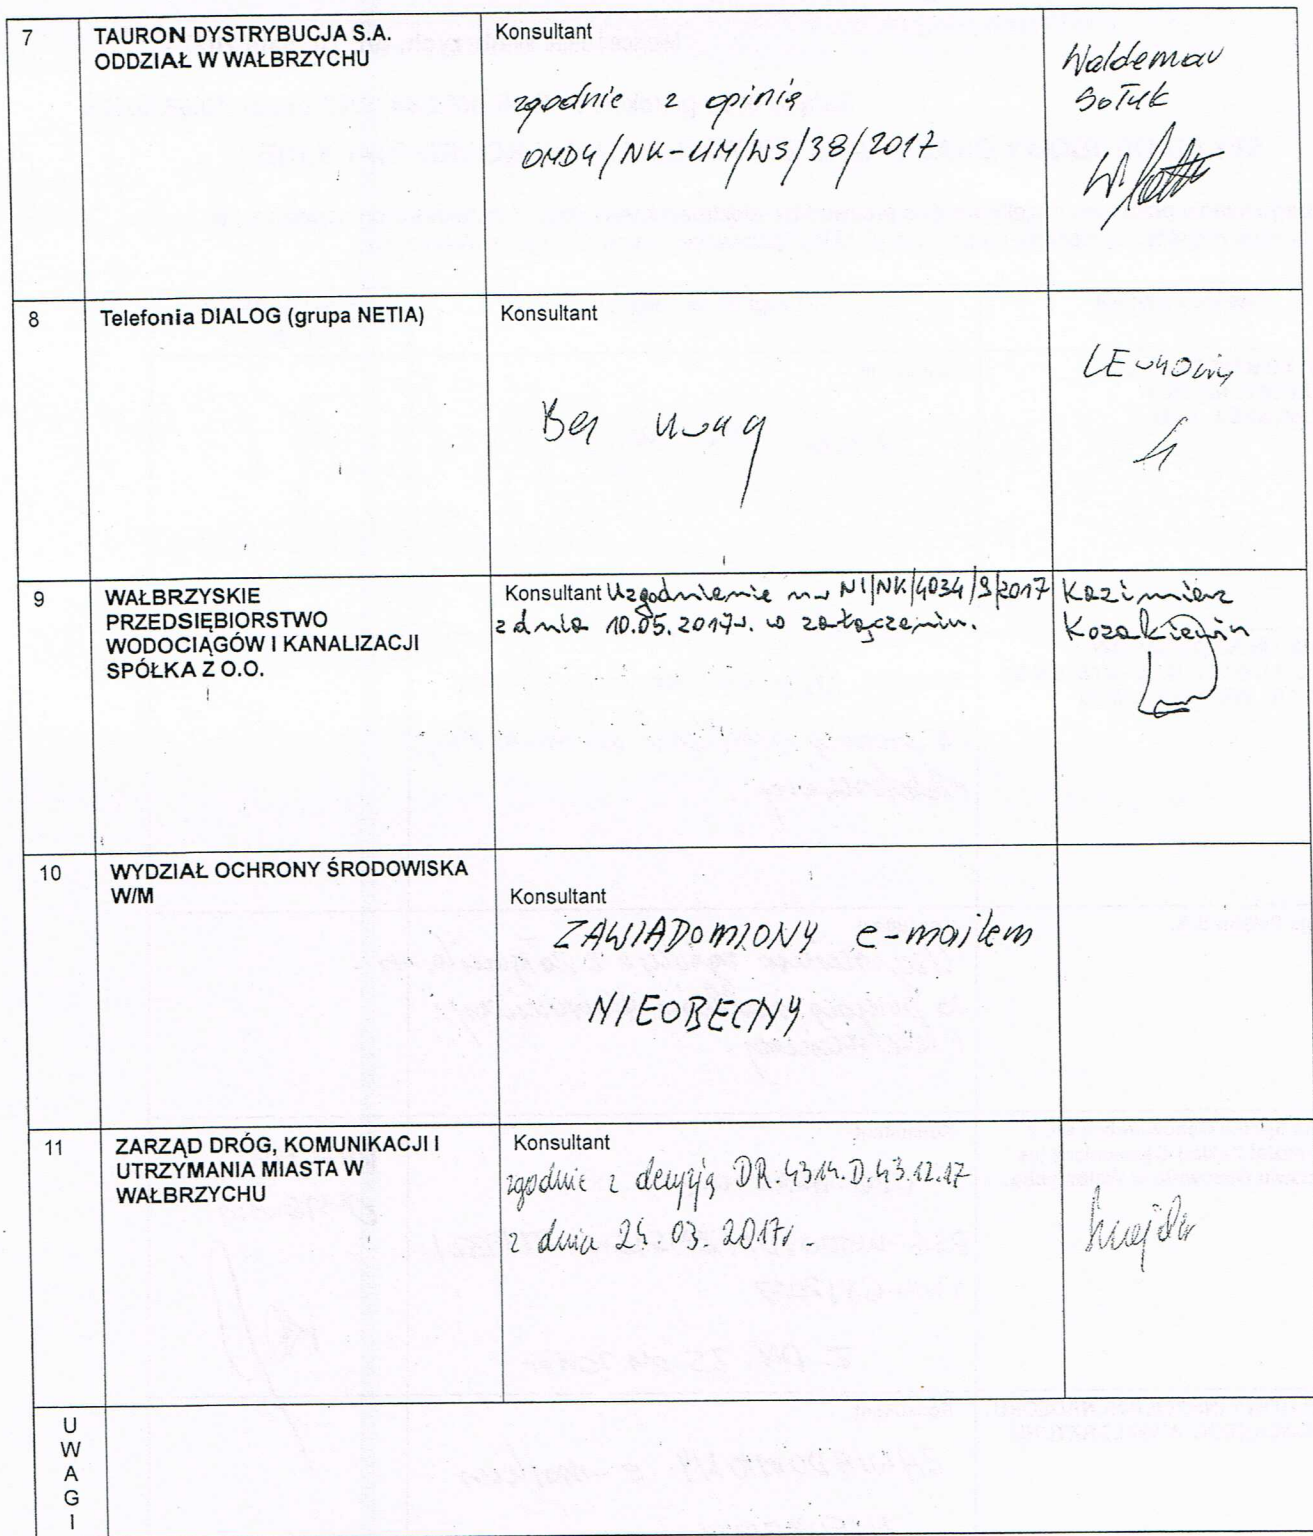 7
TAURON DYSTRYBUCJA S.A.
ODDZIAŁ W WAŁBRZYCHU
Konsultant
zgodnie z opinią
OMD4/NK-UM/WS/38/2017
Waldemar
Sołuk
8
Telefonia DIALOG (grupa NETIA)
Konsultant
Bez uwag
9
WAŁBRZYSKIE
PRZEDSIĘBIORSTWO
WODOCIĄGÓW I KANALIZACJI
SPÓŁKA Z O.O.
Konsultant Uzgodnienie nr NI/NK/4034/S/2017
z dnia 10.05.2017r. w załączeniu.
Kazimierz
Kozakiewicz
10
WYDZIAŁ OCHRONY ŚRODOWISKA
W/M
Konsultant
ZAWIADOMIONY e-mailem
NIEOBECNY
11
ZARZĄD DRÓG, KOMUNIKACJI I
UTRZYMANIA MIASTA W
WAŁBRZYCHU
Konsultant
zgodnie z decyzją DR.4314.D.43.12.17
z dnia 24.03.2017r
U
W
A
G
I